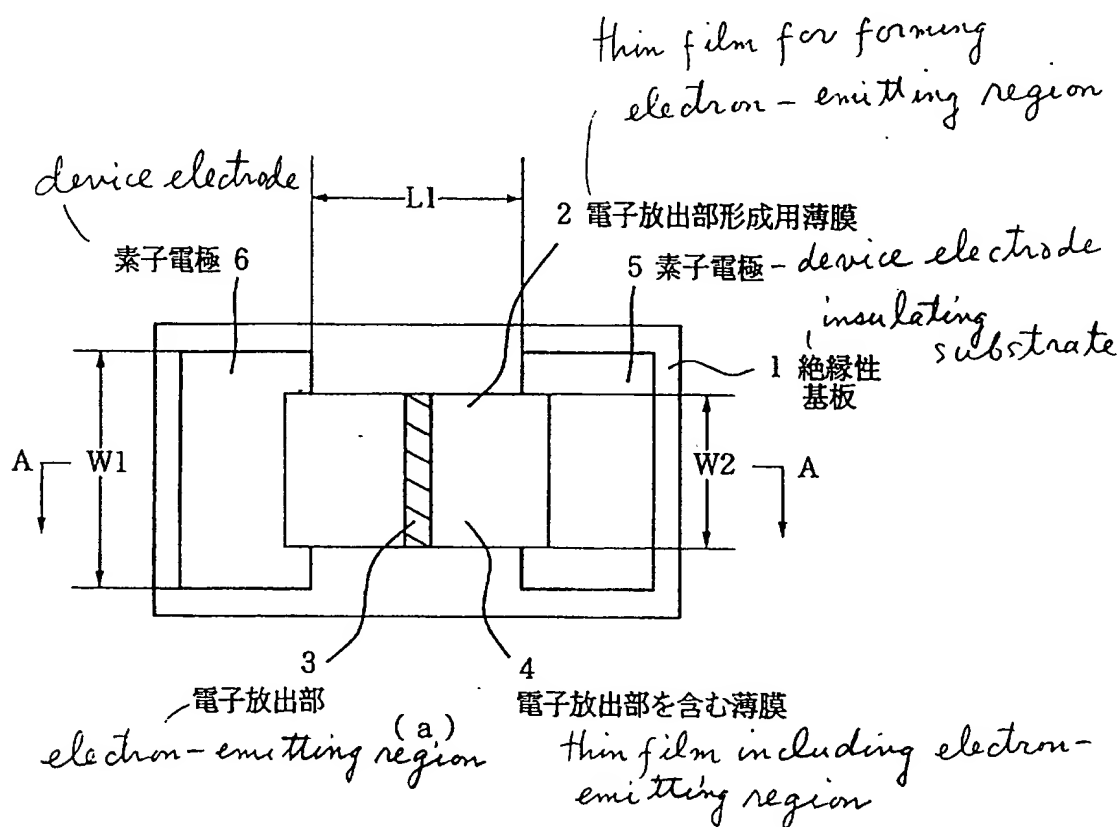 thin film for forming
electron-emitting region
device electrode
L1
2 電子放出部形成用薄膜
素子電極 6
5 素子電極 - device electrode
insulating
substrate
1 絶縁性
基板
A
W1
W2
A
3
4
電子放出部
電子放出部を含む薄膜
(a)
electron-emitting region
thin film including electron-
emitting region